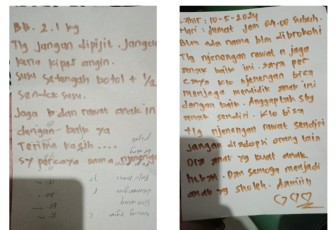 BB. 2.1 kg
Tlg jangan dipijit. Jangan
kena kipas angin.
susu setengah botol + 1/2
sendok susu.
Jaga & dan rawat anak ini
dengan baik ya
Terima kasih....
sy percaya sama
Lahir : 10-5-2024
Hari : Jumat Jam 04.00 subuh.
Blm ada nama blm dibrokohi
Tlg njenengan rawat n jaga
anak baik ini. saya per
caya klo njenengan bisa
menjaga mendidik anak ini
dengan baik. Anggaplah sby
anak sendiri. Klo bisa
tlg njenengan rawat sendiri
jangan diadopsi orang lain
Doa yg buat anak
hebat. Dan semoga menjadi
anak yg sholeh. Aamiin